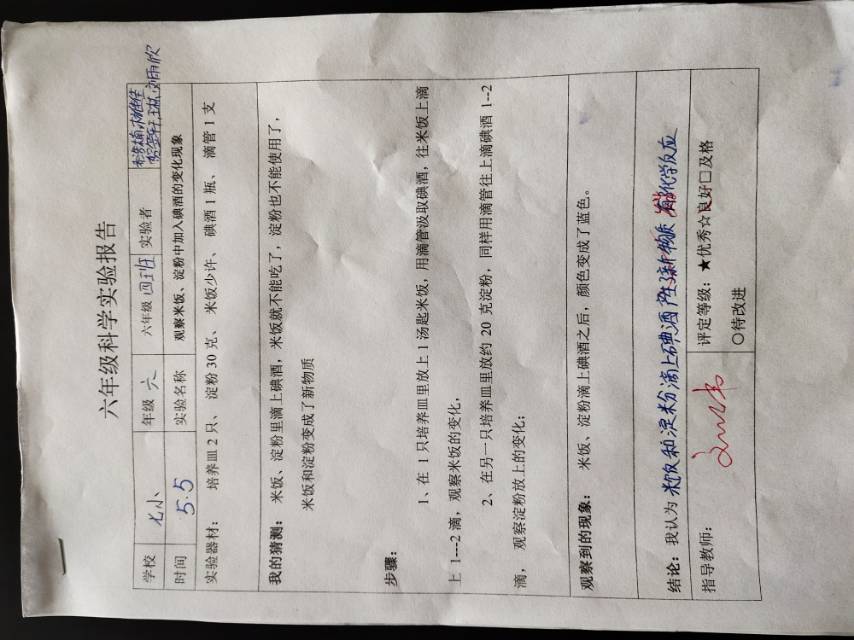 六年级科学实验报告
学校 七小 年级 六 六年级 四班 实验者
时间 5.5 实验名称 观察米饭、淀粉中加入碘酒的变化现象
实验器材： 培养皿2只、 淀粉30克、 米饭少许、 碘酒1瓶、 滴管1支
我的猜测： 米饭、淀粉里滴上碘酒，米饭就不能吃了，淀粉也不能使用了，
米饭和淀粉变成了新物质
步骤：
1、在1只培养皿里放上1汤匙米饭，用滴管汲取碘酒，往米饭上滴
上1---2滴，观察米饭的变化，
2、在另一只培养皿里放约20克淀粉，同样用滴管往上滴碘酒1--2
滴，观察淀粉放上的变化；
观察到的现象： 米饭、淀粉滴上碘酒之后，颜色变成了蓝色。
结论：我认为 米饭和淀粉滴上碘酒产生新物质 化学反应
指导教师： 评定等级：★优秀☆良好□及格
○待改进